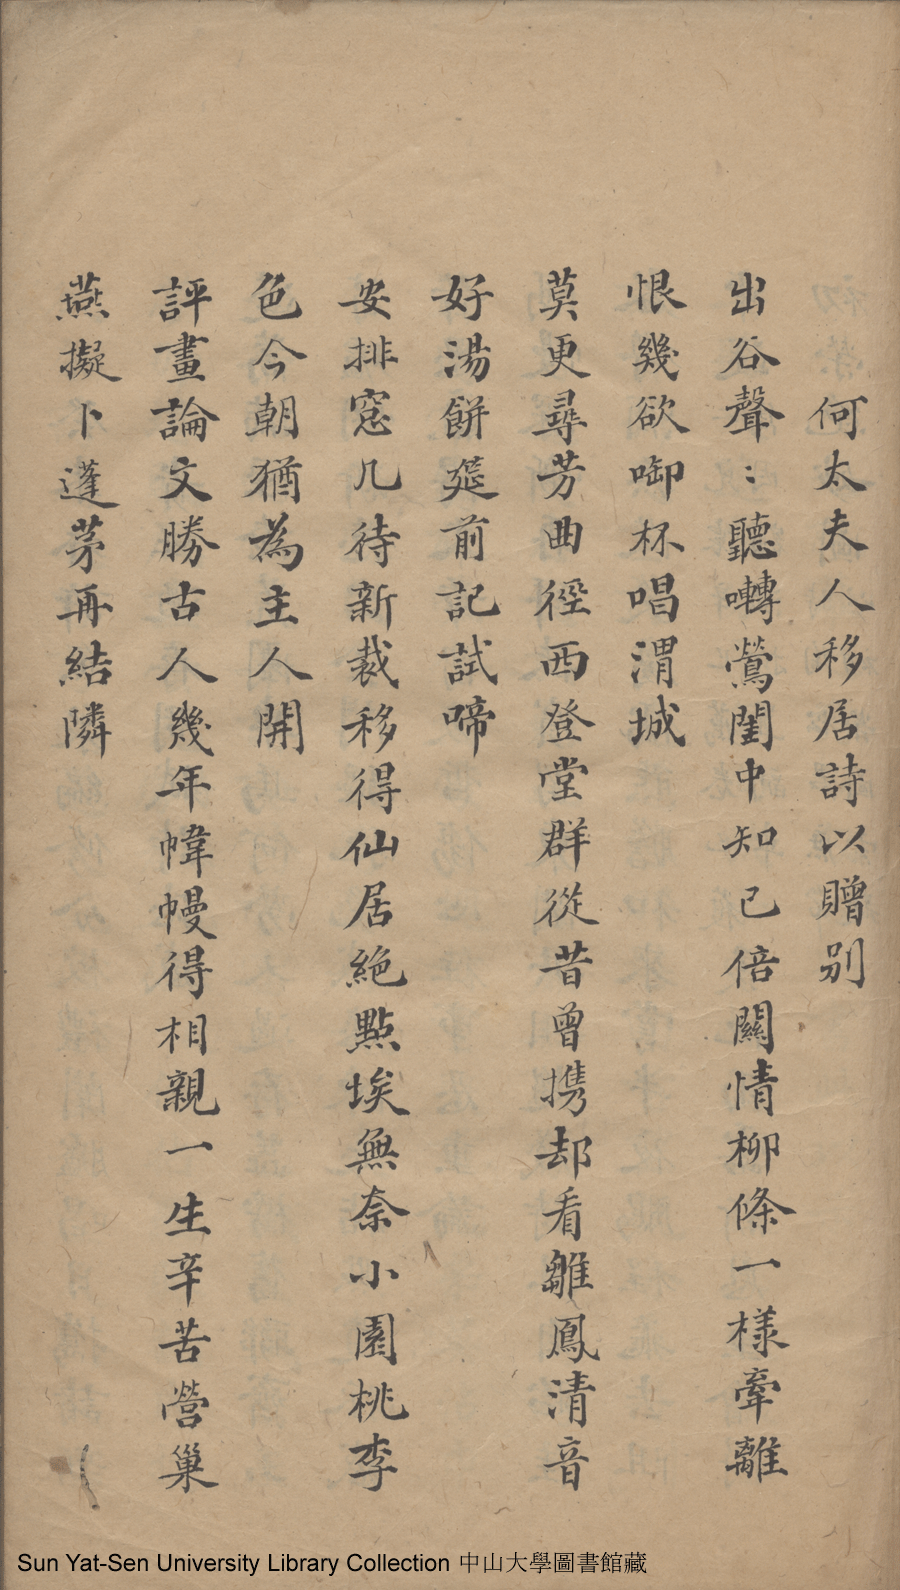 何太夫人移居詩以贈別
出谷聲:聽囀鶯閨中知己倍關情柳條一樣牽離
恨幾欲啣杯唱渭城
莫更尋芳曲徑西登堂群從昔曾携却看雛鳳清音
好湯餅筵前記試啼
安排窓几待新裁移得仙居絶點埃無奈小園桃李
色今朝猶為主人開
評畫論文勝古人幾年幃幔得相親一生辛苦營巢
燕擬卜蓬茅再結隣
Sun Yat-Sen University Library Collection 中山大學圖書館藏